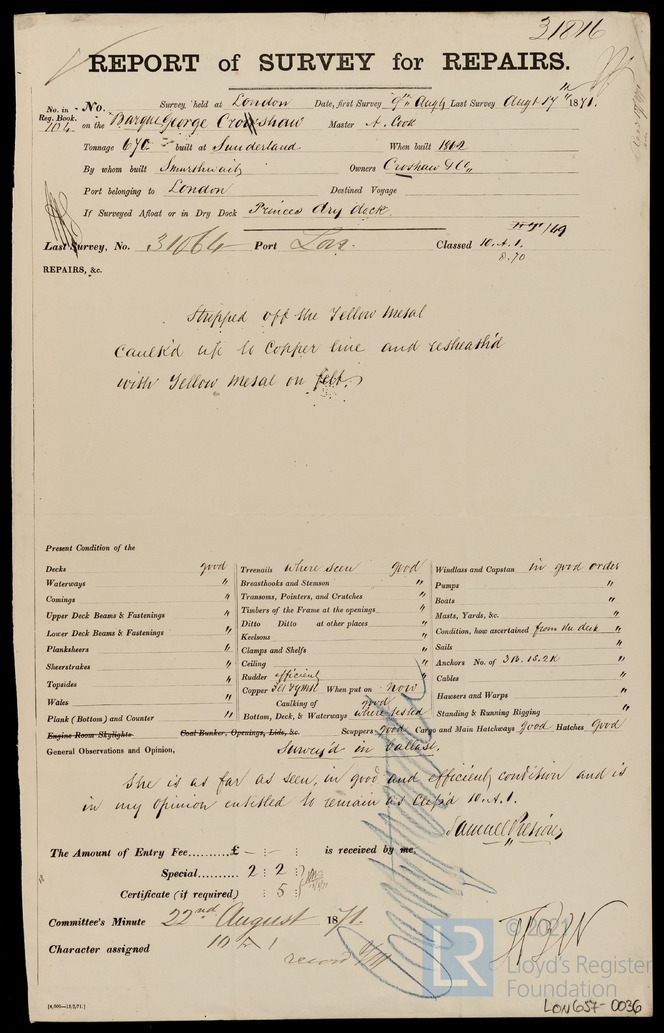 31816
REPORT of SURVEY for REPAIRS.
No. in Reg. Book. 104
No. Survey held at London Date, first Survey 9th Augt Last Survey Augt 17th 1871.
on the Barque George Crowshaw Master A. Cook
Tonnage 670 built at Sunderland When built 1862
By whom built Smurthwaite Owners Croshaw & Co
Port belonging to London Destined Voyage
If Surveyed Afloat or in Dry Dock Princes dry dock.
Last Survey, No. 31064 Port Lon. Classed 10. A. 1.
8.70
REPAIRS, &c.
Stripped off the Yellow Metal
Caulk'd up to Copper line and resheath'd
with Yellow Metal on felt.
Present Condition of the
Decks good
Waterways "
Comings "
Upper Deck Beams & Fastenings "
Lower Deck Beams & Fastenings "
Planksheers "
Sheerstrakes "
Topsides "
Wales "
Plank (Bottom) and Counter "
Engine Room Skylights Coal Bunker, Openings, Lids, &c.
Treenails where seen good
Breasthooks and Stemson "
Transoms, Pointers, and Crutches "
Timbers of the Frame at the openings "
Ditto Ditto at other places "
Keelsons "
Clamps and Shelfs "
Ceiling "
Rudder efficient
Copper When put on now
Caulking of good
Bottom, Deck, & Waterways where tested
Windlass and Capstan in good order
Pumps "
Boats "
Masts, Yards, &c. "
Condition, how ascertained from the deck "
Sails "
Anchors No. of 3B. 1S. 2K "
Cables "
Hawsers and Warps "
Standing & Running Rigging "
Scuppers good Cargo and Main Hatchways good Hatches good
General Observations and Opinion, Survey'd in ballast.
She is as far as seen, in good and efficient condition and is
in my opinion entitled to remain as Class'd 10. A. 1.
Samuel
The Amount of Entry Fee..........£ - : - : is received by me,
Special.......... 2 : 2 :
Certificate (if required) : 5 :
Committee's Minute 22nd August 1871.
Character assigned 10 A 1
record
[4,000—15/2/71.]
© 2021
LR
Lloyd's Register
Foundation
LON657-0036